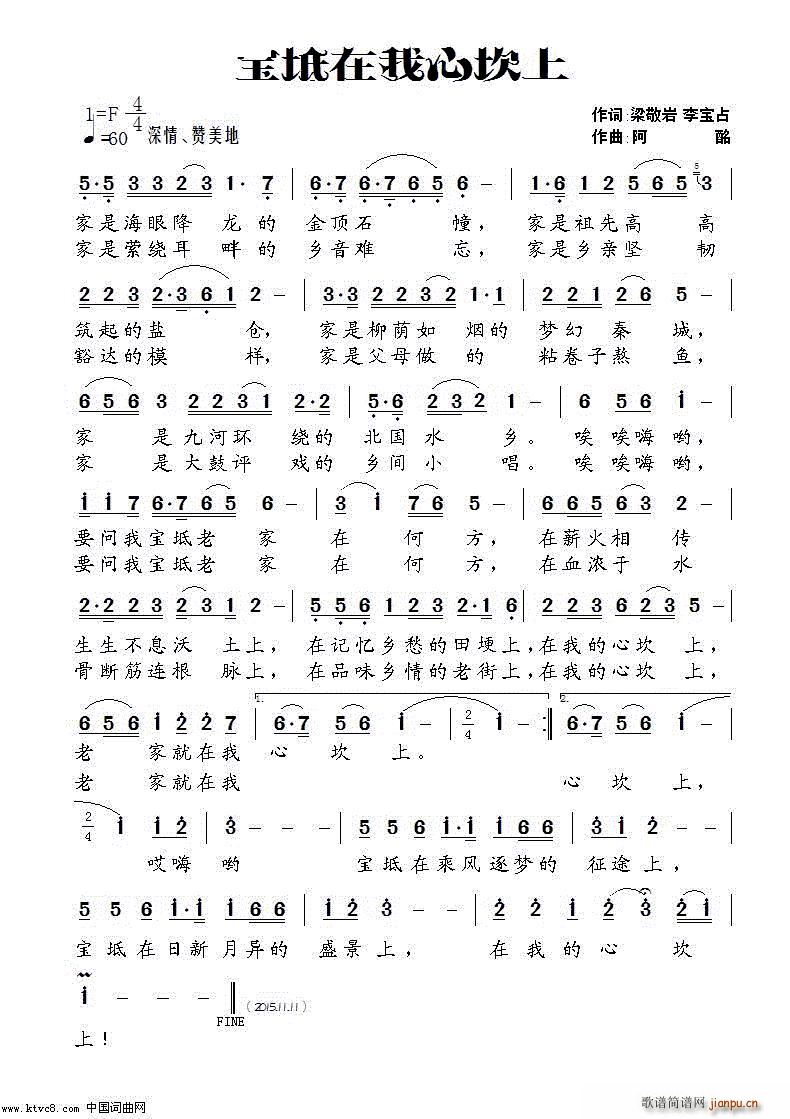 宝坻在我心坎上
1=F 4/4 作词:梁敬岩 李宝占
♩=60 深情、赞美地 作曲:阿 酩
5·5 3 3 2 3 1· 7 | 6·7 6·7 6 5 6 - | 1·6 1 2 5 6 5 5 3
家是海眼降 龙的 金顶石 幢， 家是祖先高 高
家是萦绕耳 畔的 乡音难 忘， 家是乡亲坚 韧
2 2 3 2·3 6 1 2 - | 3·3 2 2 3 2 1·1 | 2 2 1 2 6 5 -
筑起的盐 仓， 家是柳荫如 烟的 梦幻秦 城，
豁达的模 样， 家是父母做 的 粘卷子熬 鱼，
6 5 6 3 2 2 3 1 2·2 | 5·6 2 3 2 1 - | 6 5 6 i -
家 是九河环 绕的 北国水 乡。 唉唉嗨哟，
家 是大鼓评 戏的 乡间小 唱。 唉唉嗨哟，
i i 7 6·7 6 5 6 - | 3 i 7 6 5 - | 6 6 5 6 3 2 -
要问我宝坻老 家 在 何 方， 在薪火相 传
要问我宝坻老 家 在 何 方， 在血浓于 水
2·2 2 3 2 1 2 - | 5 5 6 1 2 3 2·1 6 | 2 2 3 6 2 3 5 -
生生不息沃 土上， 在记忆乡愁的田埂上，在我的心坎上，
骨断筋连根 脉上， 在品味乡情的老街上，在我的心坎上，
6 5 6 i 2 2 7 | 1. 6·7 5 6 i - | 2/4 i - :‖ 2. 6·7 5 6 i -
老 家就在我 心 坎 上。
老 家就在我 心 坎 上，
2/4 i i 2 | 3 - | 5 5 6 i·i i 6 6 | 3 2 3 - |
哎嗨 哟 宝坻在乘风逐梦的 征途上，
5 5 6 i·i i 6 6 | i 2 3 - | i 2 2 3 2 i |
宝坻在日新月异的 盛景上， 在我的心 坎
i - - - ‖ (2015.11.11)
FINE
上！
www.ktvc8.com 中国词曲网
歌谱简谱网
jianpu.cn